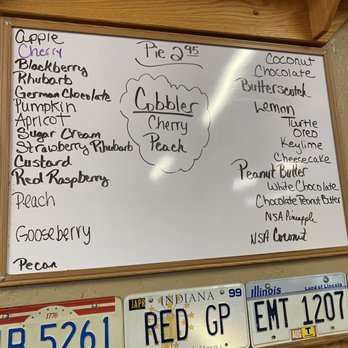 Apple
Cherry
Blackberry
Rhubarb
German Chocolate
Pumpkin
Apricot
Sugar Cream
Strawberry Rhubarb
Custard
Red Raspberry
Peach
Gooseberry
Pecan
Pie 2.95
Cobbler
Cherry
Peach
Coconut
Chocolate
Butterscotch
Lemon
Turtle
Oreo
Keylime
Cheesecake
Peanut Butter
White Chocolate
Chocolate Peanut Butter
NSA Pineapple
NSA Coconut
1776
5261
APR INDIANA 99
RED GP
Illinois Land of Lincoln
EMT 1207
AUG